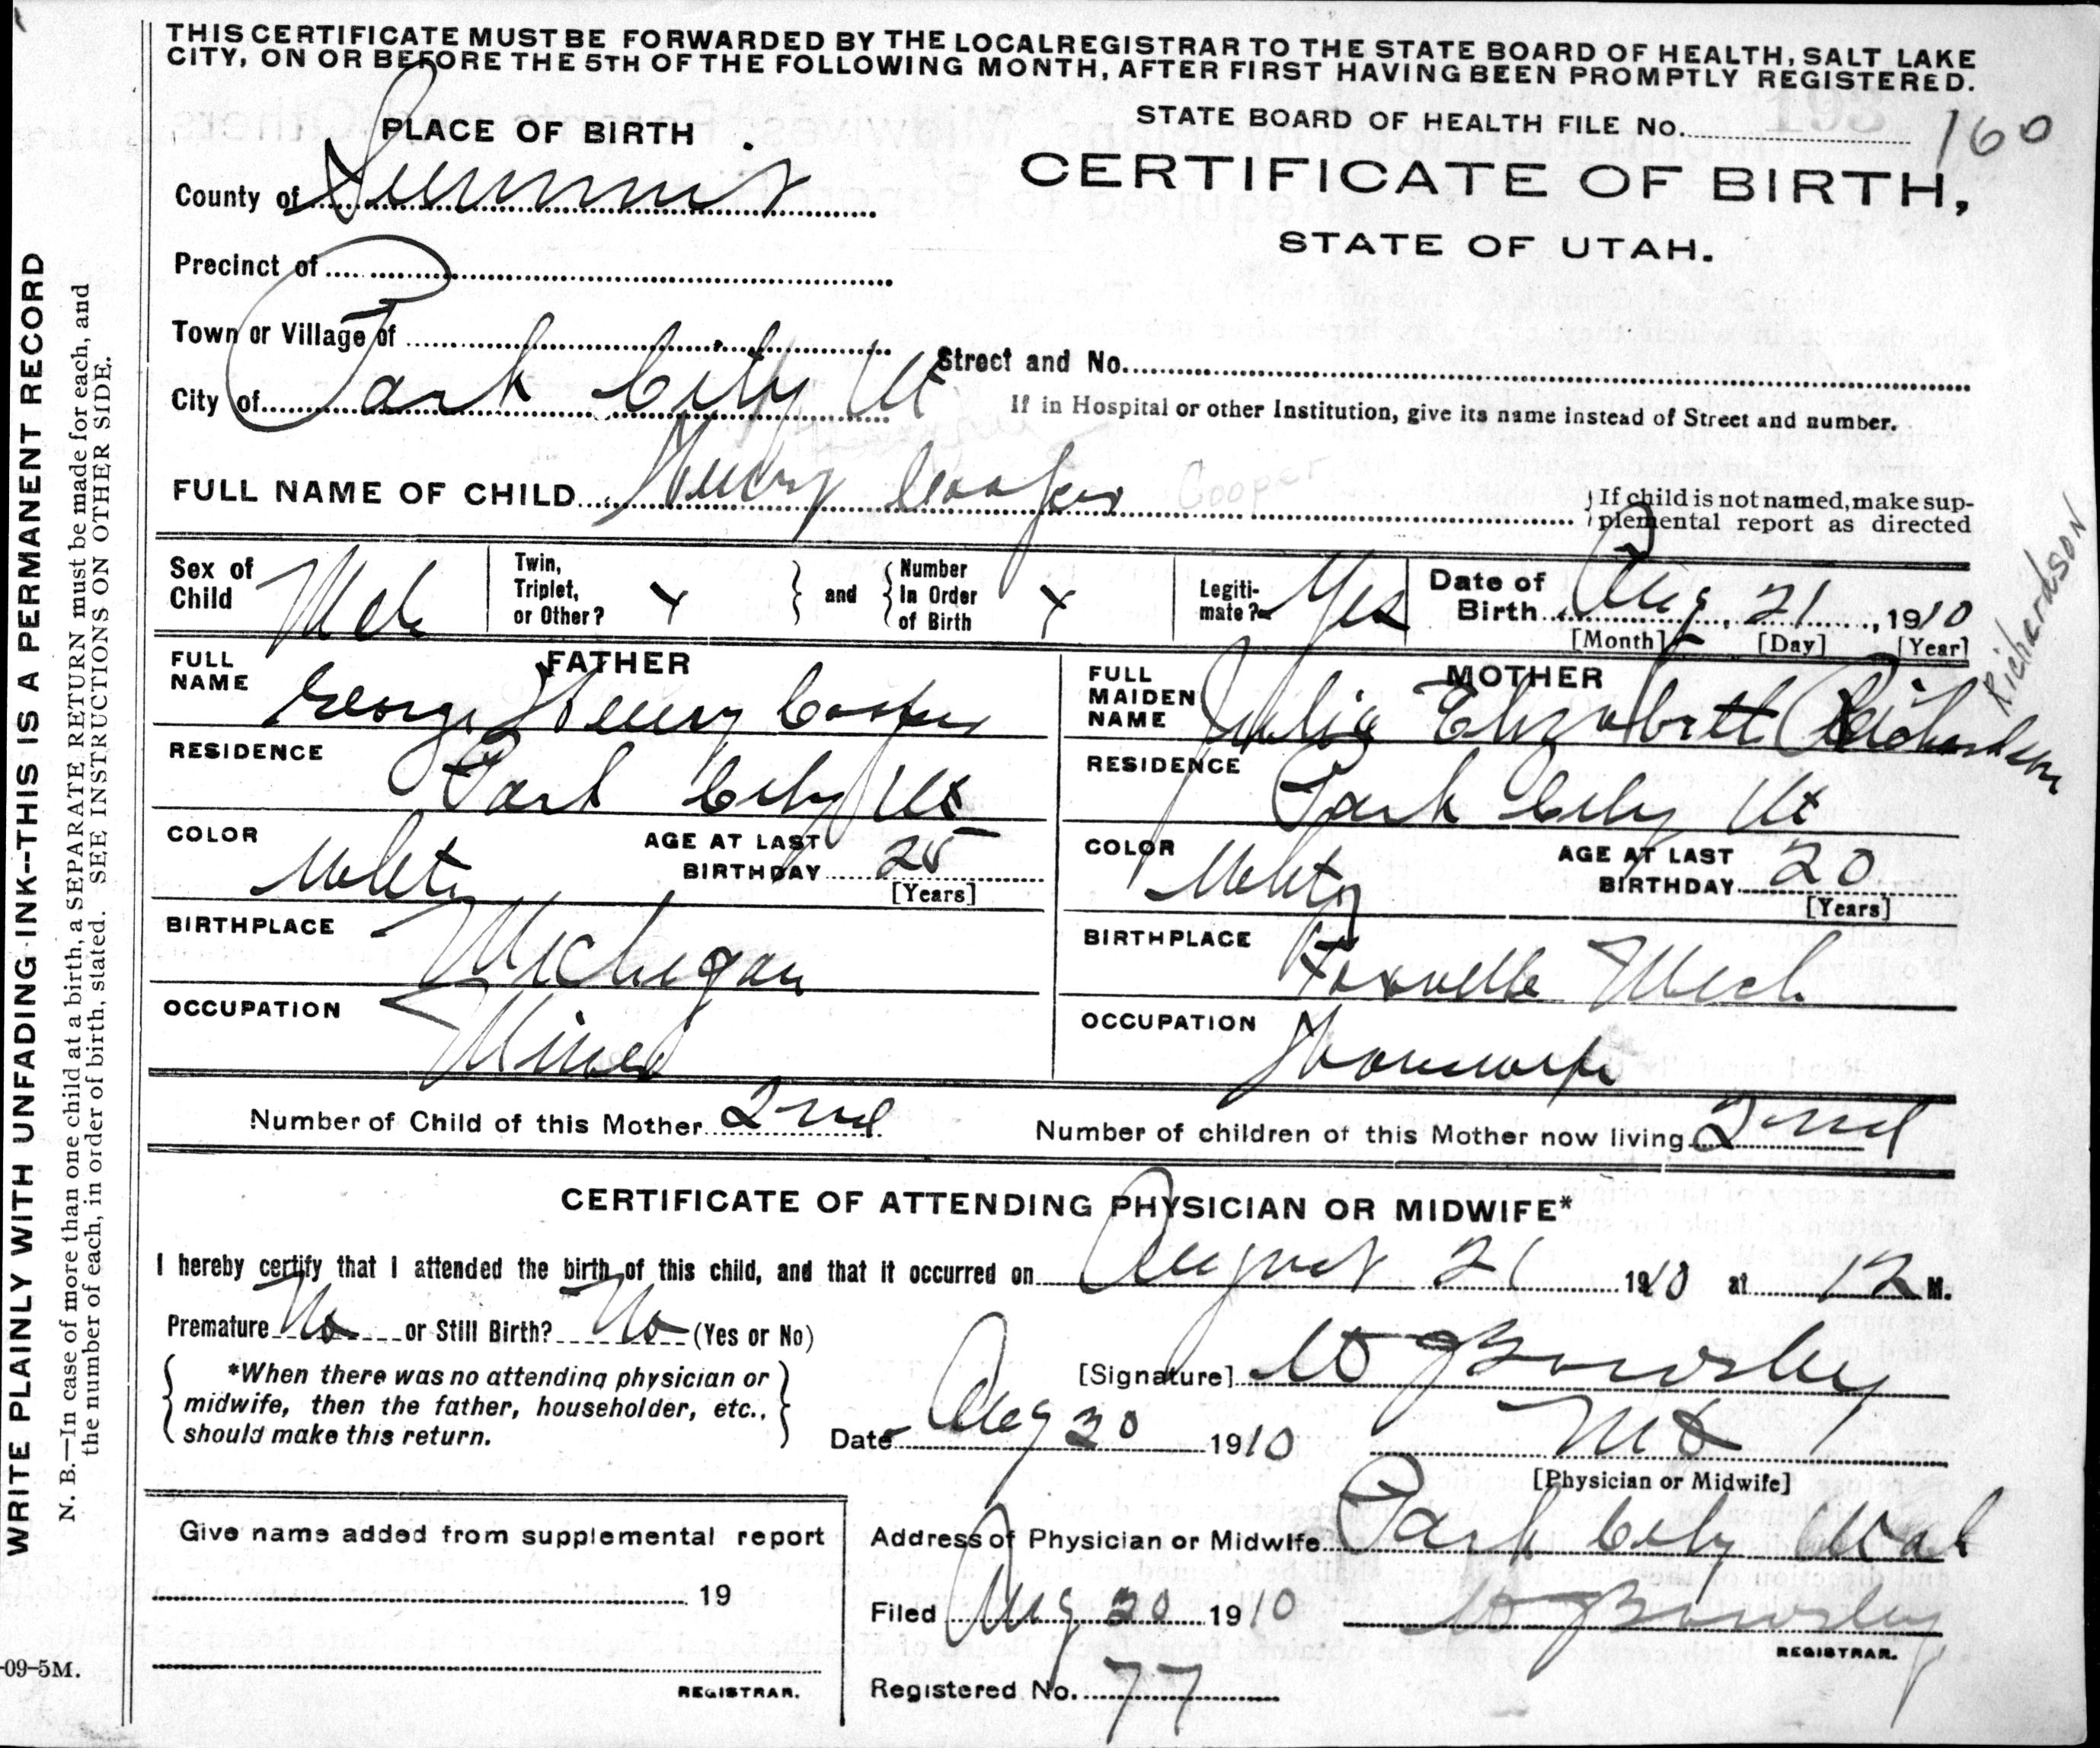 THIS CERTIFICATE MUST BE FORWARDED BY THE LOCAL REGISTRAR TO THE STATE BOARD OF HEALTH, SALT LAKE
CITY, ON OR BEFORE THE 5TH OF THE FOLLOWING MONTH, AFTER FIRST HAVING BEEN PROMPTLY REGISTERED.
STATE BOARD OF HEALTH FILE No. 160
PLACE OF BIRTH
CERTIFICATE OF BIRTH,
STATE OF UTAH.
County of Summit
Precinct of
Town or Village of
Street and No.
City of Park City Ut
If in Hospital or other Institution, give its name instead of Street and number.
FULL NAME OF CHILD Henry Cooper Cooper
If child is not named, make sup-
plemental report as directed
Sex of Child Male
Twin, Triplet, or Other? x and Number In Order of Birth x
Legiti-mate? Yes
Date of Birth Aug 21, 1910
[Month] [Day] [Year]
Richardson
FATHER
FULL NAME George Henry Cooper
RESIDENCE Park City Ut
COLOR White
AGE AT LAST BIRTHDAY 25
[Years]
BIRTHPLACE Michigan
OCCUPATION Miner
MOTHER
FULL MAIDEN NAME Julia Elizabett Richardson
RESIDENCE Park City Ut
COLOR White
AGE AT LAST BIRTHDAY 20
[Years]
BIRTHPLACE Mich
OCCUPATION Housewife
Number of Child of this Mother 2nd
Number of children of this Mother now living 2nd
CERTIFICATE OF ATTENDING PHYSICIAN OR MIDWIFE*
I hereby certify that I attended the birth of this child, and that it occurred on August 21 1910 at 12 M.
Premature No or Still Birth? No (Yes or No)
*When there was no attending physician or
midwife, then the father, householder, etc.,
should make this return.
[Signature] Bowsley
Date Aug 30 1910
MD
[Physician or Midwife]
Give name added from supplemental report
19
REGISTRAR.
Address of Physician or Midwife Park City Utah
Filed Aug 30 1910 Bowsley
REGISTRAR.
Registered No. 77
WRITE PLAINLY WITH UNFADING INK--THIS IS A PERMANENT RECORD
N. B.—In case of more than one child at a birth, a SEPARATE RETURN must be made for each, and
the number of each, in order of birth, stated. SEE INSTRUCTIONS ON OTHER SIDE.
-09-5M.